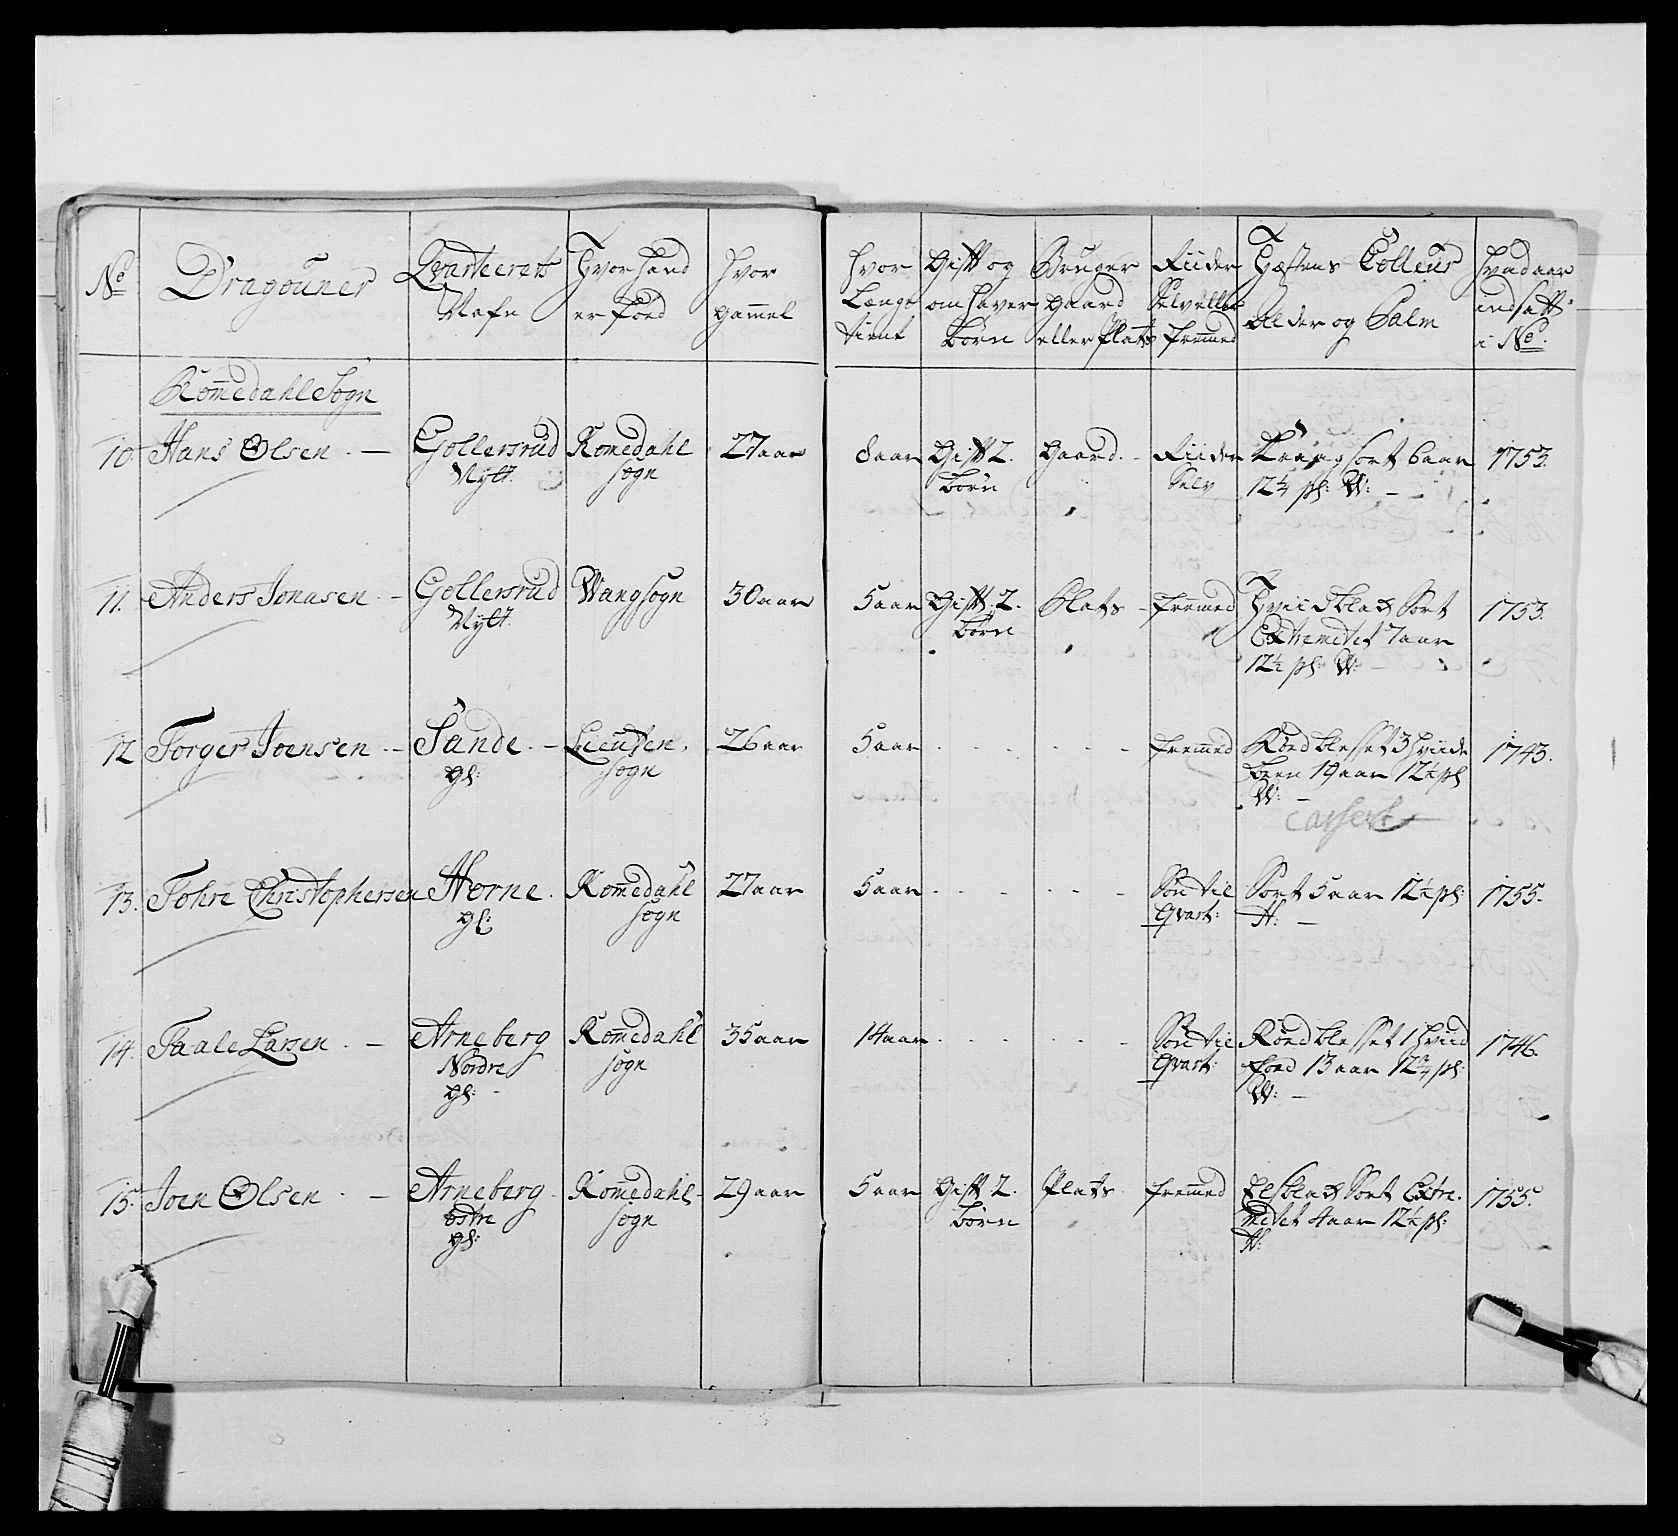 No Dragouner Qvarteerets Nafn Hvor hand er Föed Hvor gammel Hvor Længe tient Gift og om haver börn Bruger gaard eller Plats Riider Selv eller fremmed Hæstens Colleur Alder og Palm Hvad aar indsatt i No.
Romedahl Sogn
10. Hans Olsen. — Gollersrud Nylt. Romedahl sogn 27 aar 8 aar Gift 2. börn Gaard. Riider Selv sort 6 aar 12¼ pl: W: — 1753.
11. Anders Jonasen. — Gollersrud Nylt. Wang sogn 30 aar 5 aar Gift. 2. börn Plats - fremmed Hviidblach Sort Extremitet 7 aar 12½ pl: W: — 1753.
12 Torger Joensen. — Sande. — gl: Lieuten. sogn 26 aar 5 aar fremmed Röed blesset 3 hviide been 19 aar 12½ pl W: — 1743.
Cassert
13. Tohre Christophersen Horne. gl: Romedahl sogn 27 aar 5 aar Sön til Qvart: Sort 5 aar 12½ pl: H: — 1755.
14. Taale Larsen. — Arneberg Nordre gl: - Romedahl sogn 35 aar 14 aar Sön til Qvart: Röed blesset 1 hviid foed 13 aar 12¾ pl: W: — 1746.
15. Joen Olsen. — Arneberg östre gl: Romedahl sogn 29 aar 5 aar Gift 2. börn Plats. fremmed Elsblach Sort Extremitet 4 aar 12½ pl: H: 1755.